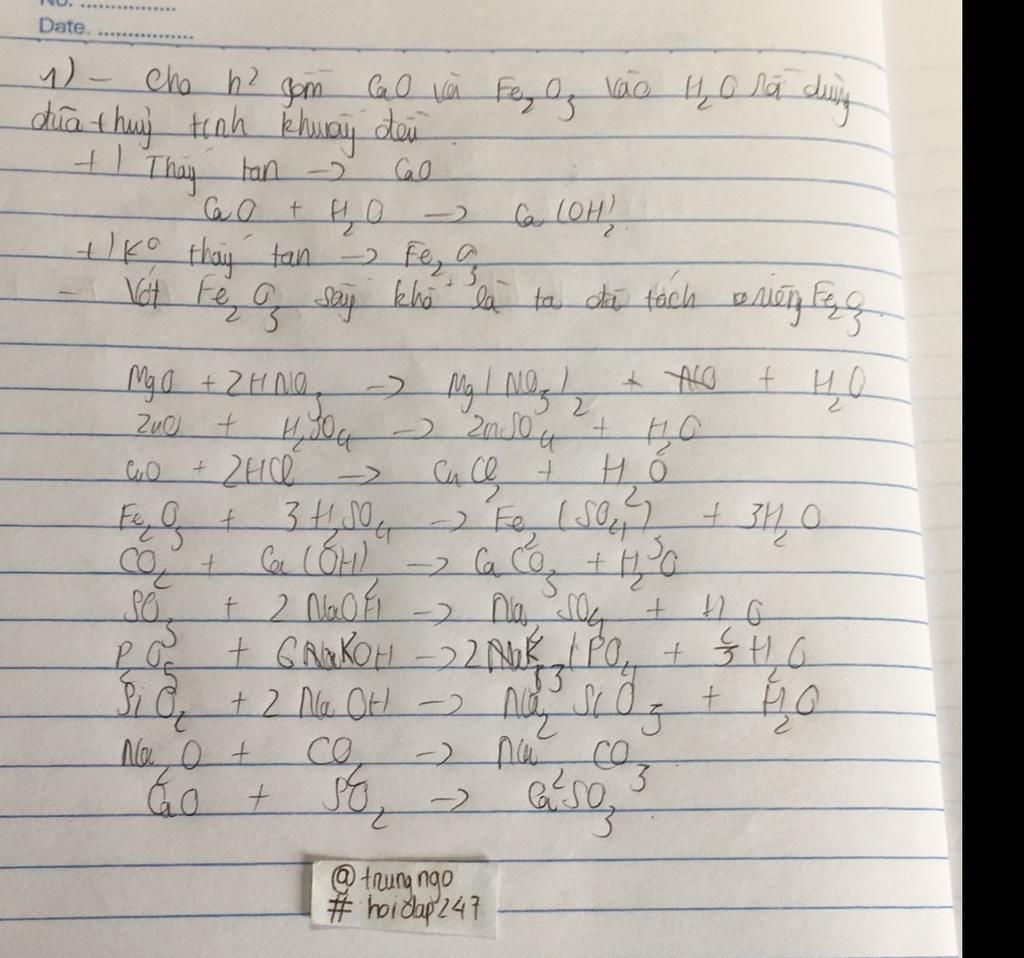 No. ................
Date. ................
1) - Cho h² gồm CaO và Fe₂O₃ vào H₂O rồi dùng
đũa thuỷ tinh khuấy đều
+) Thấy tan → CaO
CaO + H₂O → Ca(OH)₂
+) Kº thấy tan → Fe₂O₃
- Vớt Fe₂O₃ sấy khô là ta đã tách riêng Fe₂O₃
MgO + 2HNO₃ → Mg(NO₃)₂ + H₂O
ZnO + H₂SO₄ → ZnSO₄ + H₂O
CuO + 2HCl → CuCl₂ + H₂O
Fe₂O₃ + 3H₂SO₄ → Fe₂(SO₄)₃ + 3H₂O
CO₂ + Ca(OH)₂ → CaCO₃ + H₂O
SO₃ + 2NaOH → Na₂SO₄ + H₂O
P₂O₅ + 6KOH → 2K₃PO₄ + 3H₂O
SiO₂ + 2NaOH → Na₂SiO₃ + H₂O
Na₂O + CO₂ → Na₂CO₃
CaO + SO₂ → CaSO₃
@trungngo
# hoidap247